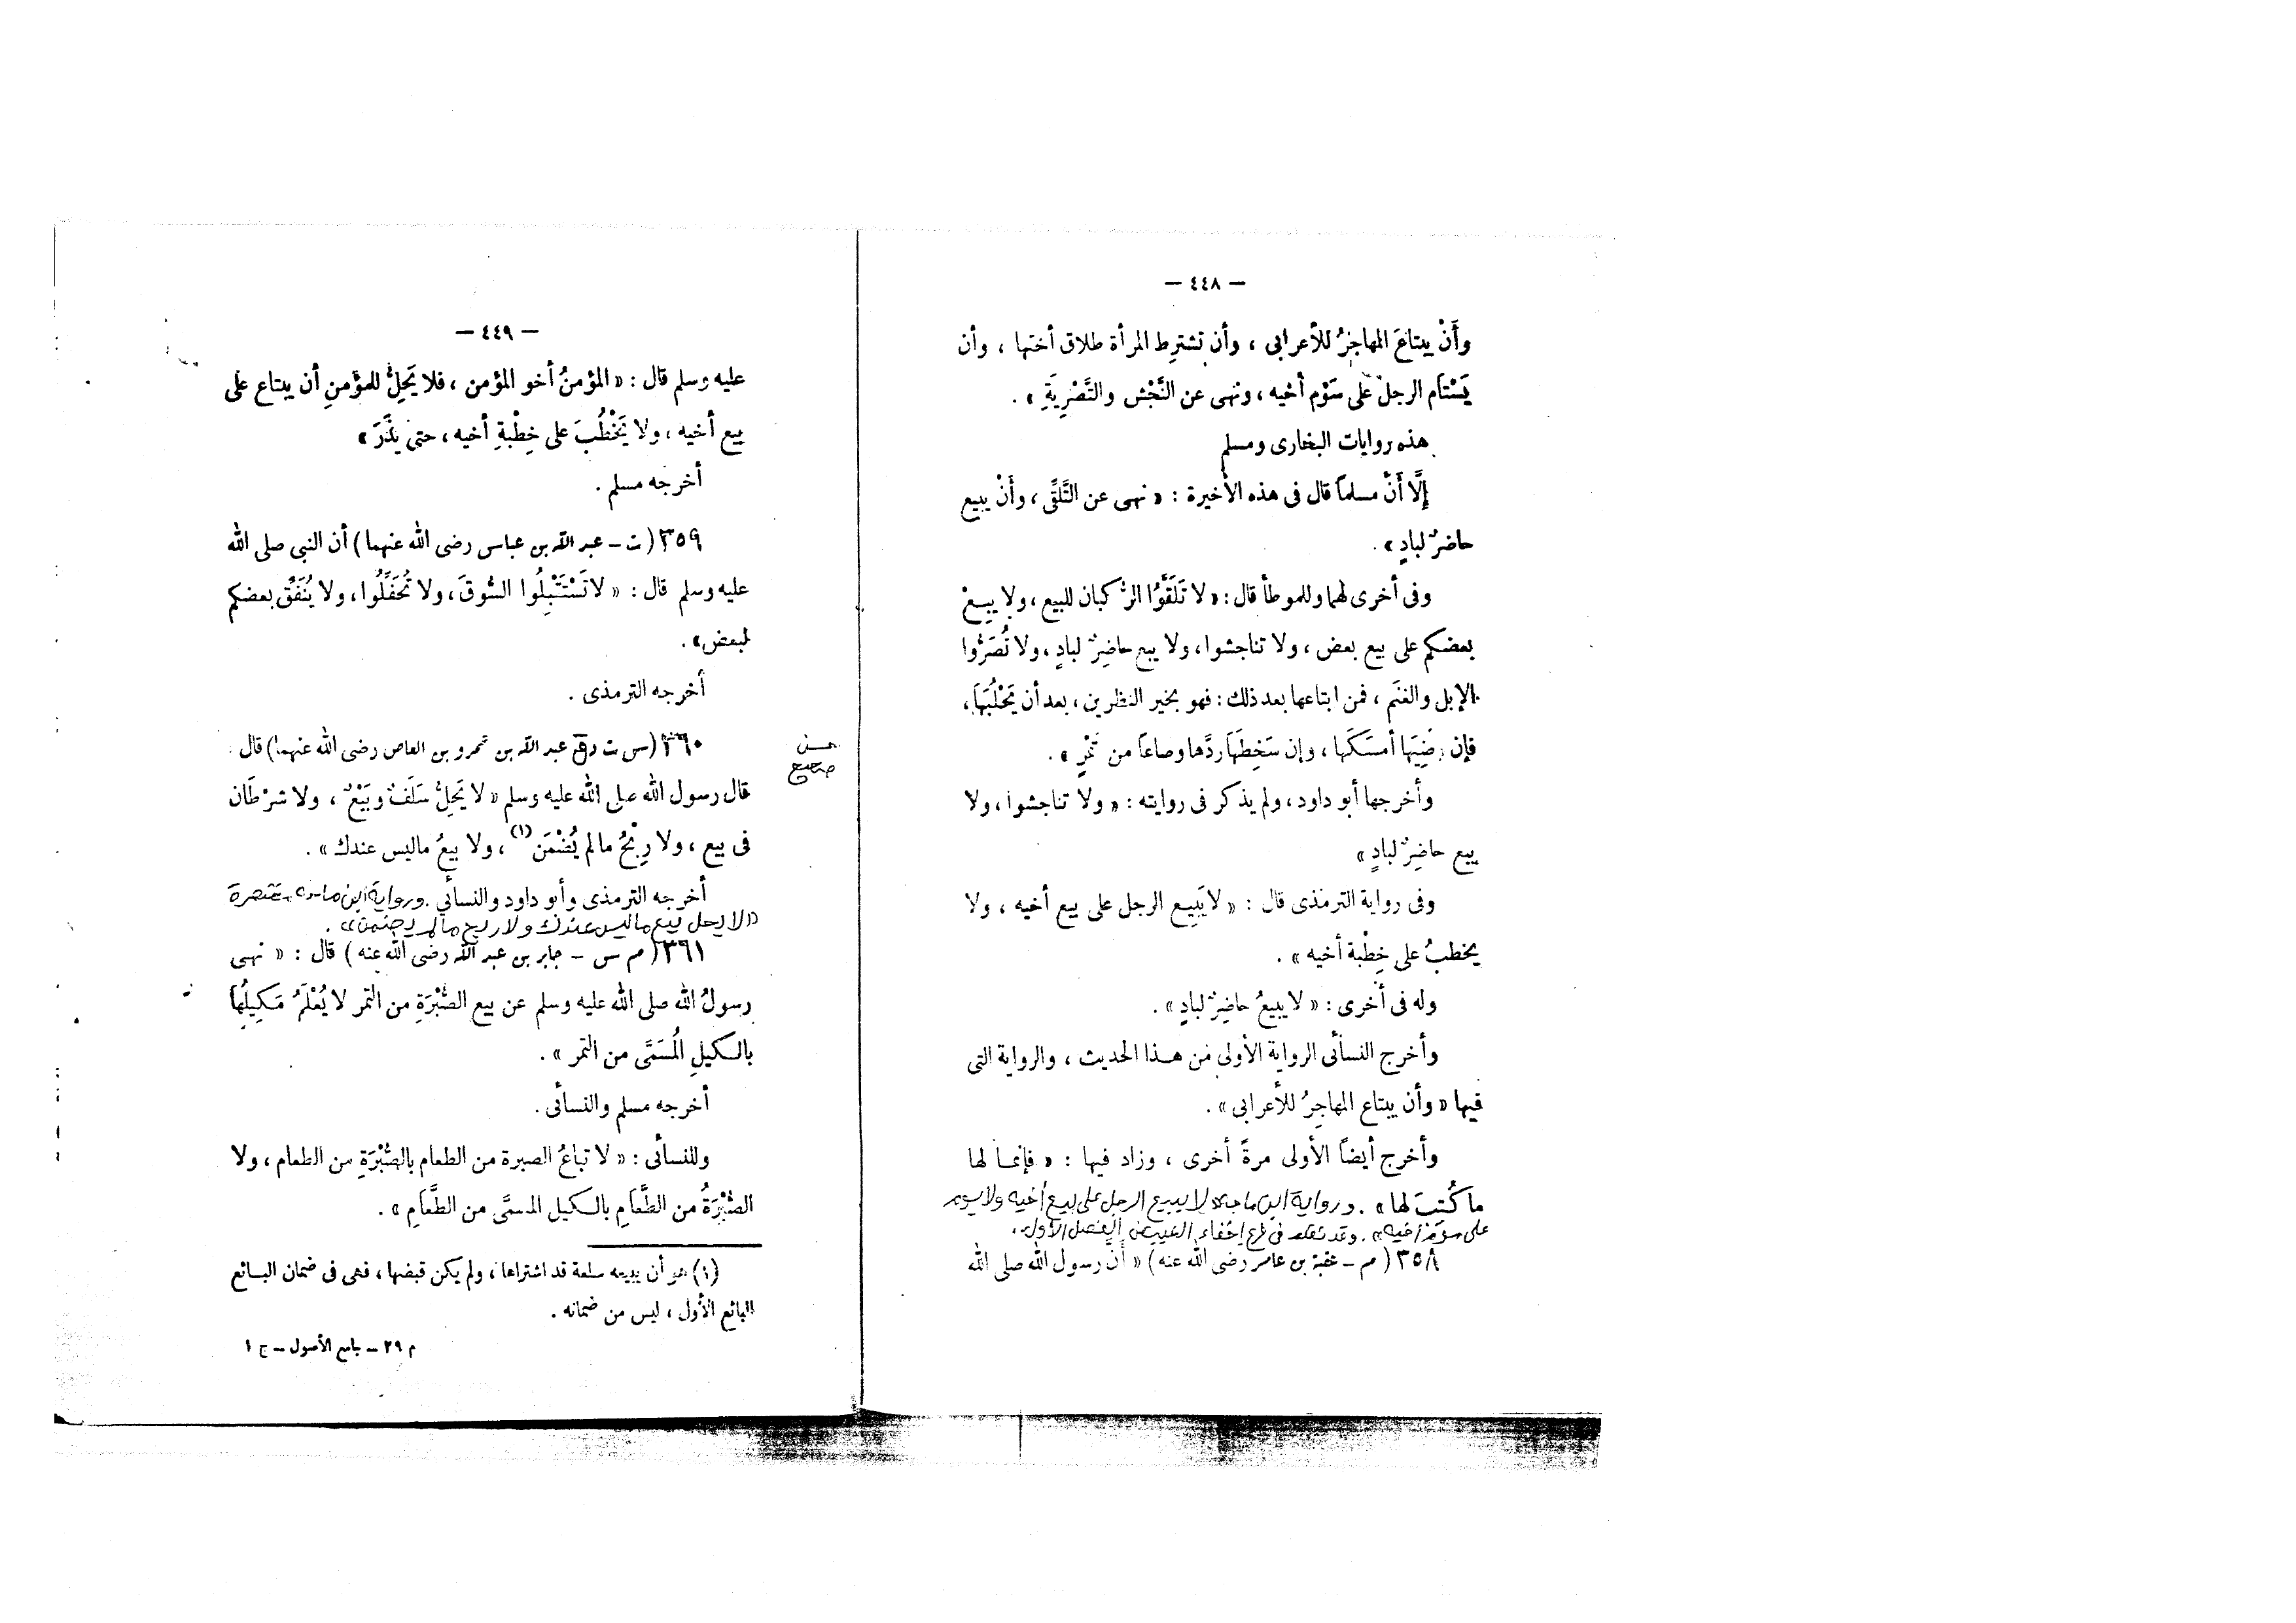 — ٤٤٨ —
وأَنْ يبتاعَ المهاجِرُ للأعرابى ، وأن تشترِط المرأة طلاق أختها ، وأن
يَسْتَام الرجلُ على سَوْم أخيه ، ونهى عن النَّجْش والتَّصْرِيَةِ » .
هذه روايات البخارى ومسلم
إلَّا أَنَّ مسلماً قال فى هذه الأخيرة : « نهى عن التَّلقِّى ، وأَنْ يبيع
حاضرٌ لبادٍ » .
وفى أخرى لهما وللموطأ قال : « لا تَلَقَّوُا الرُّكبان للبيع ، ولا يبِعْ
بعضكم على بيع بعض ، ولا تناجشوا ، ولا يبع حاضِرٌ لبادٍ ، ولا تُصَرُّوا
الإبل والغنَم ، فمن ابتاعها بعد ذلك : فهو بخير النظرين ، بعد أن يَحْلُبَهَا ،
فإن رضِيَها أمسَكَها ، وإن سَخِطَهَا ردَّها وصاعاً من تَمْرٍ » .
وأخرجها أبو داود ، ولم يذكر فى روايته : « ولا تناجشوا ، ولا
يبع حاضِرٌ لبادٍ »
وفى رواية الترمذى قال : « لا يَبِيع الرجل على بيع أخيه ، ولا
يخطبُ على خِطْبة أخيه » .
وله فى أخرى : « لا يبيعُ حاضِرٌ لبادٍ » .
وأخرج النسائى الرواية الأولى من هـذا الحديث ، والرواية التى
فيها « وأن يبتاع المهاجِرُ للأعرابى » .
وأخرج أيضاً الأولى مرةً أخرى ، وزاد فيها : « فإنمـا لها
ما كُتِبَ لها » . ورواية ابن ماجه « لا يبيع الرجل على بيع أخيه ولا يسوم
على سوم أخيه » . وقد تقدم فى فرع إخفاء العيب من الفصل الأول .
٣٥٨ ( م – عقبة بن عامر رضى الله عنه ) « أَنَّ رسول الله صلى الله
— ٤٤٩ —
عليه وسلم قال : « المؤمنُ أخو المؤمن ، فلا يَحِلُّ للمؤمنِ أن يبتاع على
بيع أخيه ، ولا يَخْطُبَ على خِطْبةِ أخيه ، حتى يذَرَ »
أخرجه مسلم .
٣٥٩ ( ت – عبد الله بن عباس رضى الله عنهما ) أن النبى صلى الله
عليه وسلم قال : « لا تَسْتَقْبِلُوا السُّوقَ ، ولا تُحَفِّلُوا ، ولا يُنَفِّقْ بعضكم
لبعض » .
أخرجه الترمذى .
حسن
صحيح
٣٦٠ ( س ت د عبد الله بن عمرو بن العاص رضى الله عنهما ) قال :
قال رسول الله صلى الله عليه وسلم « لا يَحِلُّ سَلَفٌ وبَيْعٌ ، ولا شرْطَان
فى بيع ، ولا رِبْحُ مالم يُضْمَن (١) ، ولا بيعُ ماليس عندك » .
أخرجه الترمذى وأبو داود والنسائى . ورواية ابن ماجه مختصرة
« لا يحل بيع ما ليس عندك ولا ربح ما لم يضمن » .
٣٦١ ( م س – جابر بن عبد الله رضى الله عنه ) قال : « نهـى
رسولُ الله صلى الله عليه وسلم عن بيع الصُّبْرَةِ من التمر لا يُعْلَمُ مَكِيلُهَا
بالـكيلِ الُمسَمَّى من التمر » .
أخرجه مسلم والنسائى .
وللنسائى : « لا تباعُ الصبرة من الطعام بالصُّبْرَةِ من الطعام ، ولا
الصُّبْرَةُ من الطَّعَامِ بالـكيل المسمَّى من الطَّعَامِ » .
(١) هو أن يبيعه سلعة قد اشتراها ، ولم يكن قبضها ، فهى فى ضمان البـائع
البائع الأول ، ليس من ضمانه .
م ٢٩ – جامع الأصول – ج ١